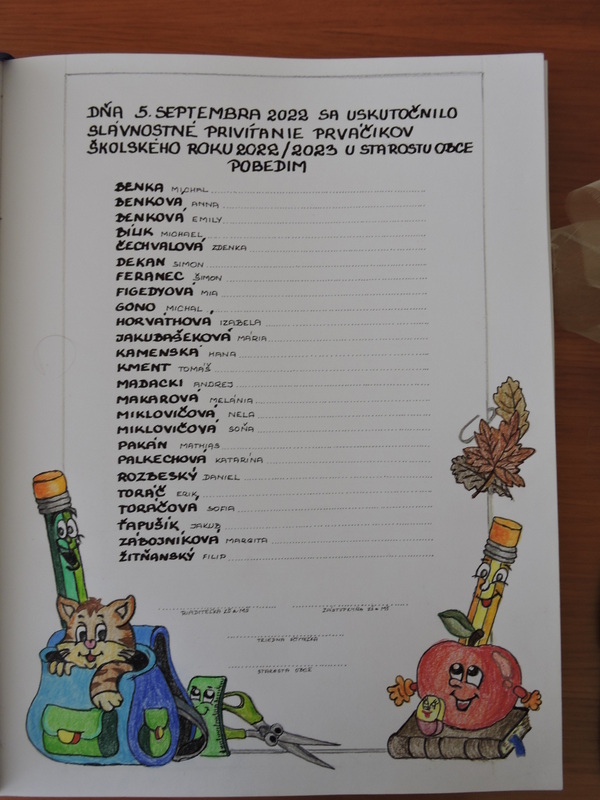 DŇA 5. SEPTEMBRA 2022 SA USKUTOČNILO
SLÁVNOSTNÉ PRIVÍTANIE PRVÁČIKOV
ŠKOLSKÉHO ROKU 2022/2023 U STAROSTU OBCE
POBEDIM
BENKA MICHAL
BENKOVÁ ANNA
BENKOVÁ EMILY
BÍLIK MICHAEL
ČECHVALOVÁ ZDENKA
DEKAN SIMON
FERANEC ŠIMON
FIGEDYOVÁ MIA
GONO MICHAL
HORVÁTHOVÁ IZABELA
JAKUBAŠEKOVÁ MÁRIA
KAMENSKÁ HANA
KMENT TOMÁŠ
MADACKI ANDREJ
MAKAROVÁ MELÁNIA
MIKLOVIČOVÁ NELA
MIKLOVIČOVÁ SOŇA
PAKÁN MATHIAS
PALKECHOVÁ KATARÍNA
ROZBESKÝ DANIEL
TORÁČ ERIK
TORÁČOVÁ SOFIA
ŤAPUŠÍK JAKUB
ZÁBOJNÍKOVÁ MARGITA
ŽITŇANSKÝ FILIP
RIADITEĽKA ZŠ S MŠ ZÁSTUPKYŇA ZŠ S MŠ
TRIEDNA UČITEĽKA
STAROSTA OBCE